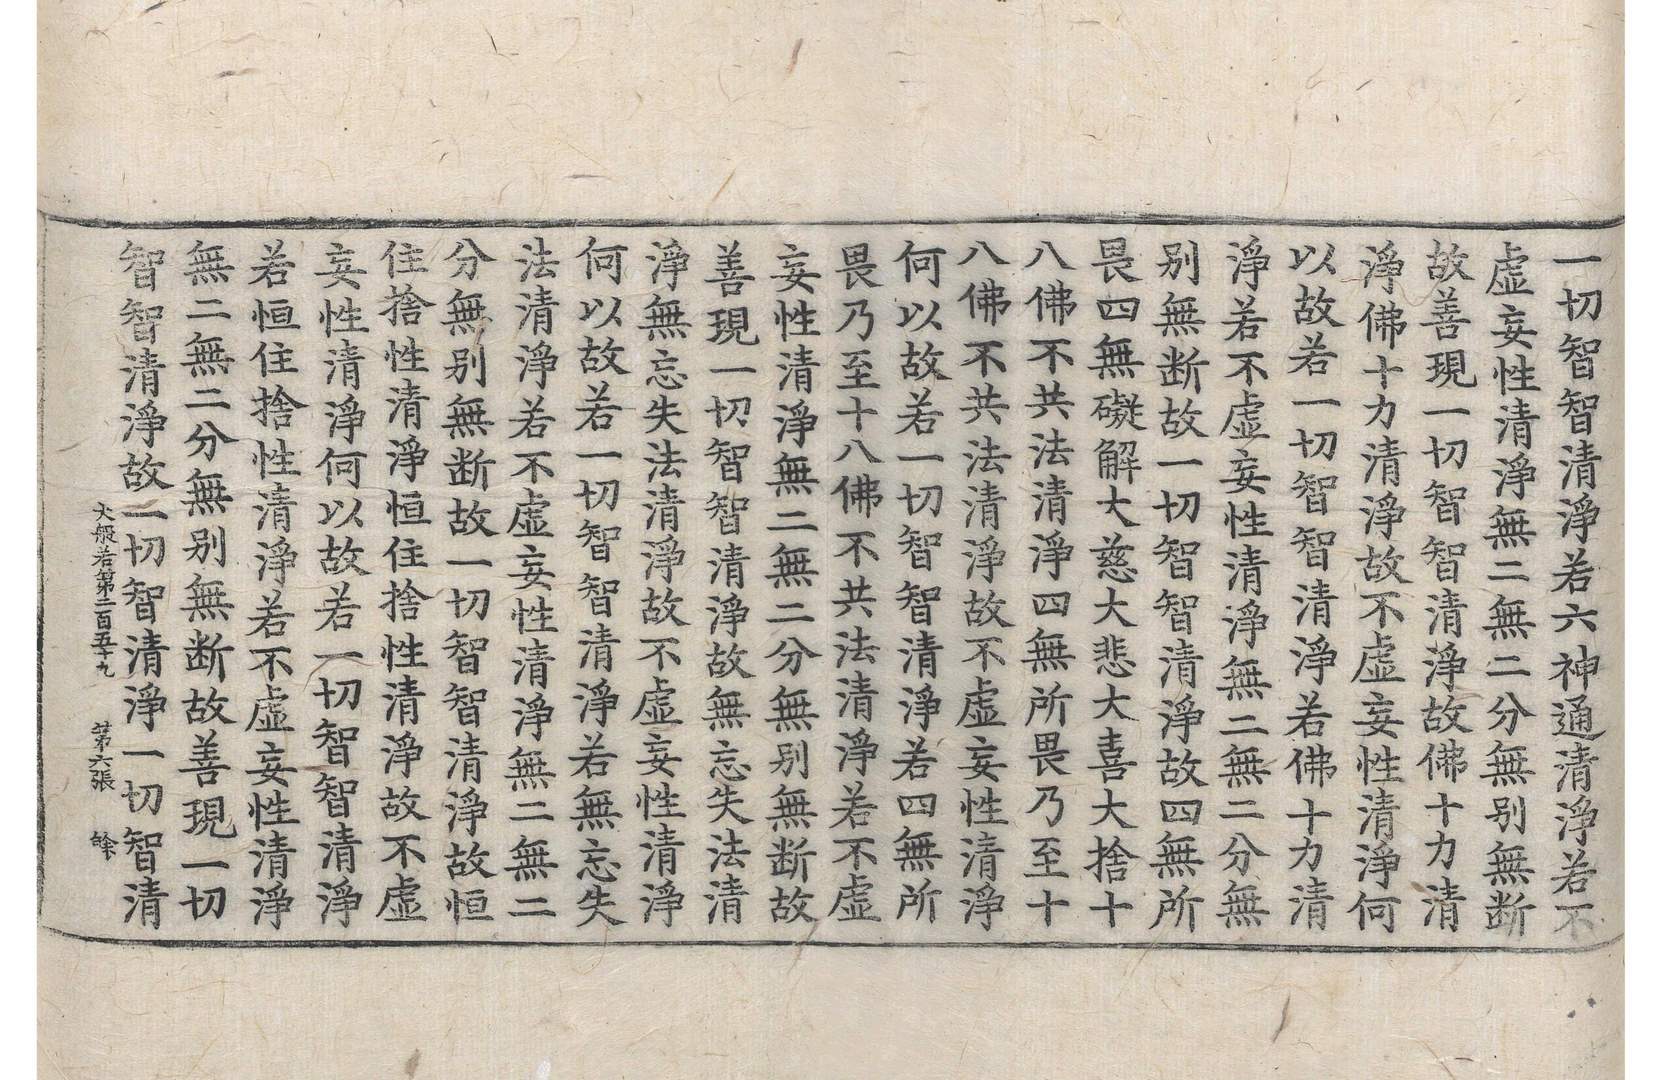 一切智智清淨若六神通清淨若不
虚妄性清淨無二無二分無别無断
故善現一切智智清淨故佛十力清
淨佛十力清淨故不虚妄性清淨何
以故若一切智智清淨若佛十力清
淨若不虚妄性清淨無二無二分無
别無断故一切智智清淨故四無所
畏四無礙解大慈大悲大喜大捨十
八佛不共法清淨四無所畏乃至十
八佛不共法清淨故不虚妄性清淨
何以故若一切智智清淨若四無所
畏乃至十八佛不共法清淨若不虚
妄性清淨無二無二分無别無断故
善現一切智智清淨故無忘失法清
淨無忘失法清淨故不虚妄性清淨
何以故若一切智智清淨若無忘失
法清淨若不虚妄性清淨無二無二
分無别無断故一切智智清淨故恒
住捨性清淨恒住捨性清淨故不虚
妄性清淨何以故若一切智智清淨
若恒住捨性清淨若不虚妄性清淨
無二無二分無别無断故善現一切
智智清淨故一切智清淨一切智清
大般若第二百五十九 第六張